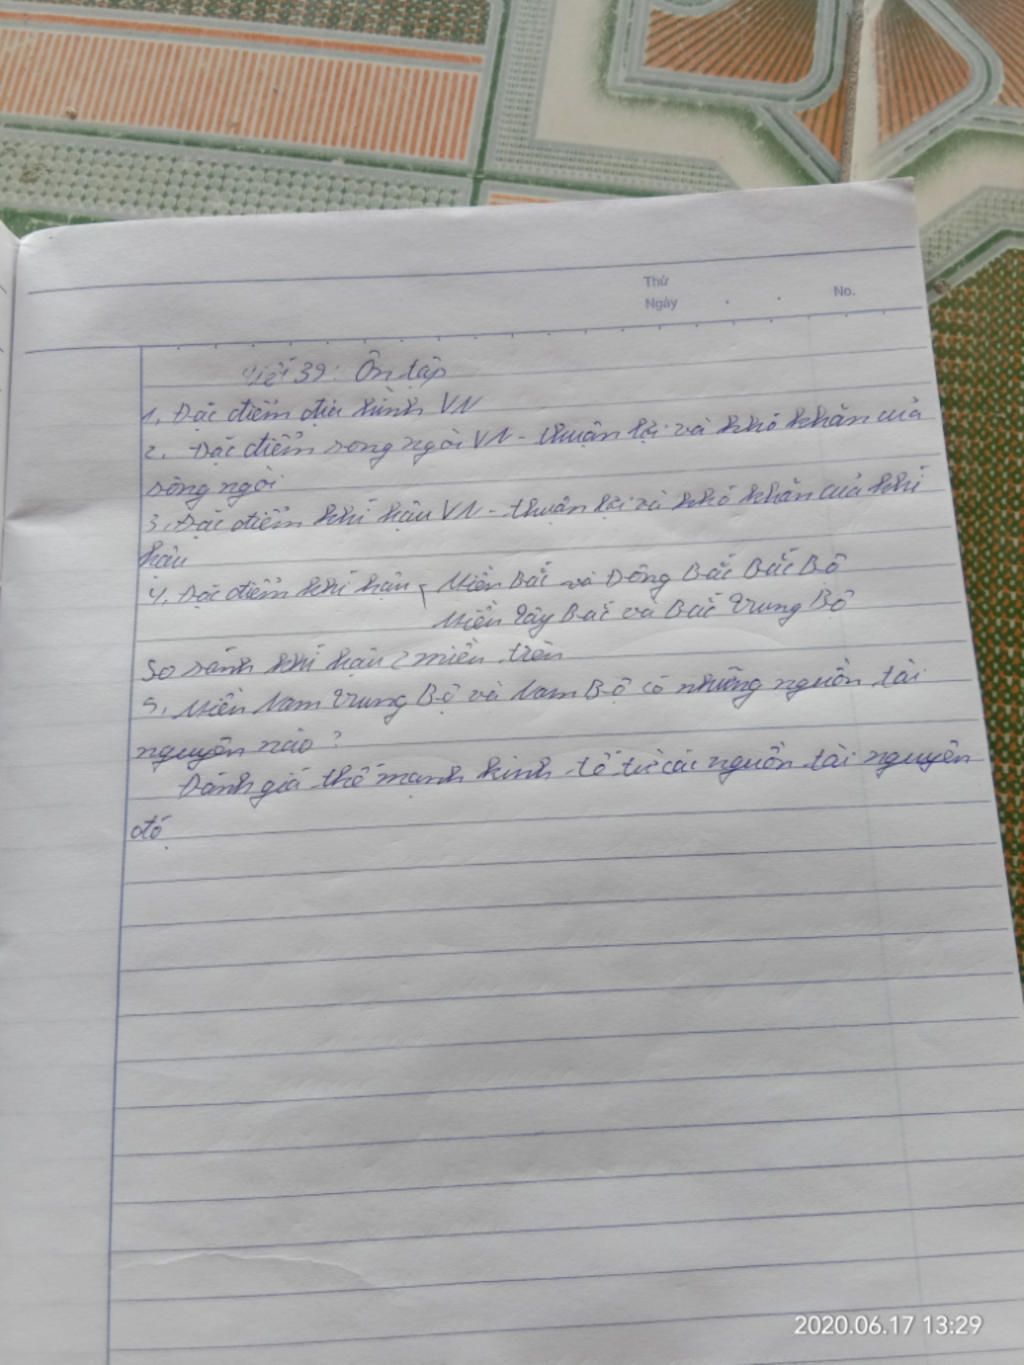 Thứ
Ngày
No.
Tiết 39: Ôn tập
1. Đặc điểm địa hình VN
2. Đặc điểm song ngòi VN - thuận lợi và khó khăn của
sông ngòi
3. Đặc điểm khí hậu VN - thuận lợi và khó khăn của khí
hậu
4. Đặc điểm khí hậu { Miền Bắc và Đông Bắc Bắc Bộ
Miền Tây Bắc và Bắc Trung Bộ
So sánh khí hậu 2 miền trên
5. Miền Nam Trung Bộ và Nam Bộ có những nguồn tài
nguyên nào?
Đánh giá thế mạnh kinh tế từ các nguồn tài nguyên
đó.
2020.06.17 13:29